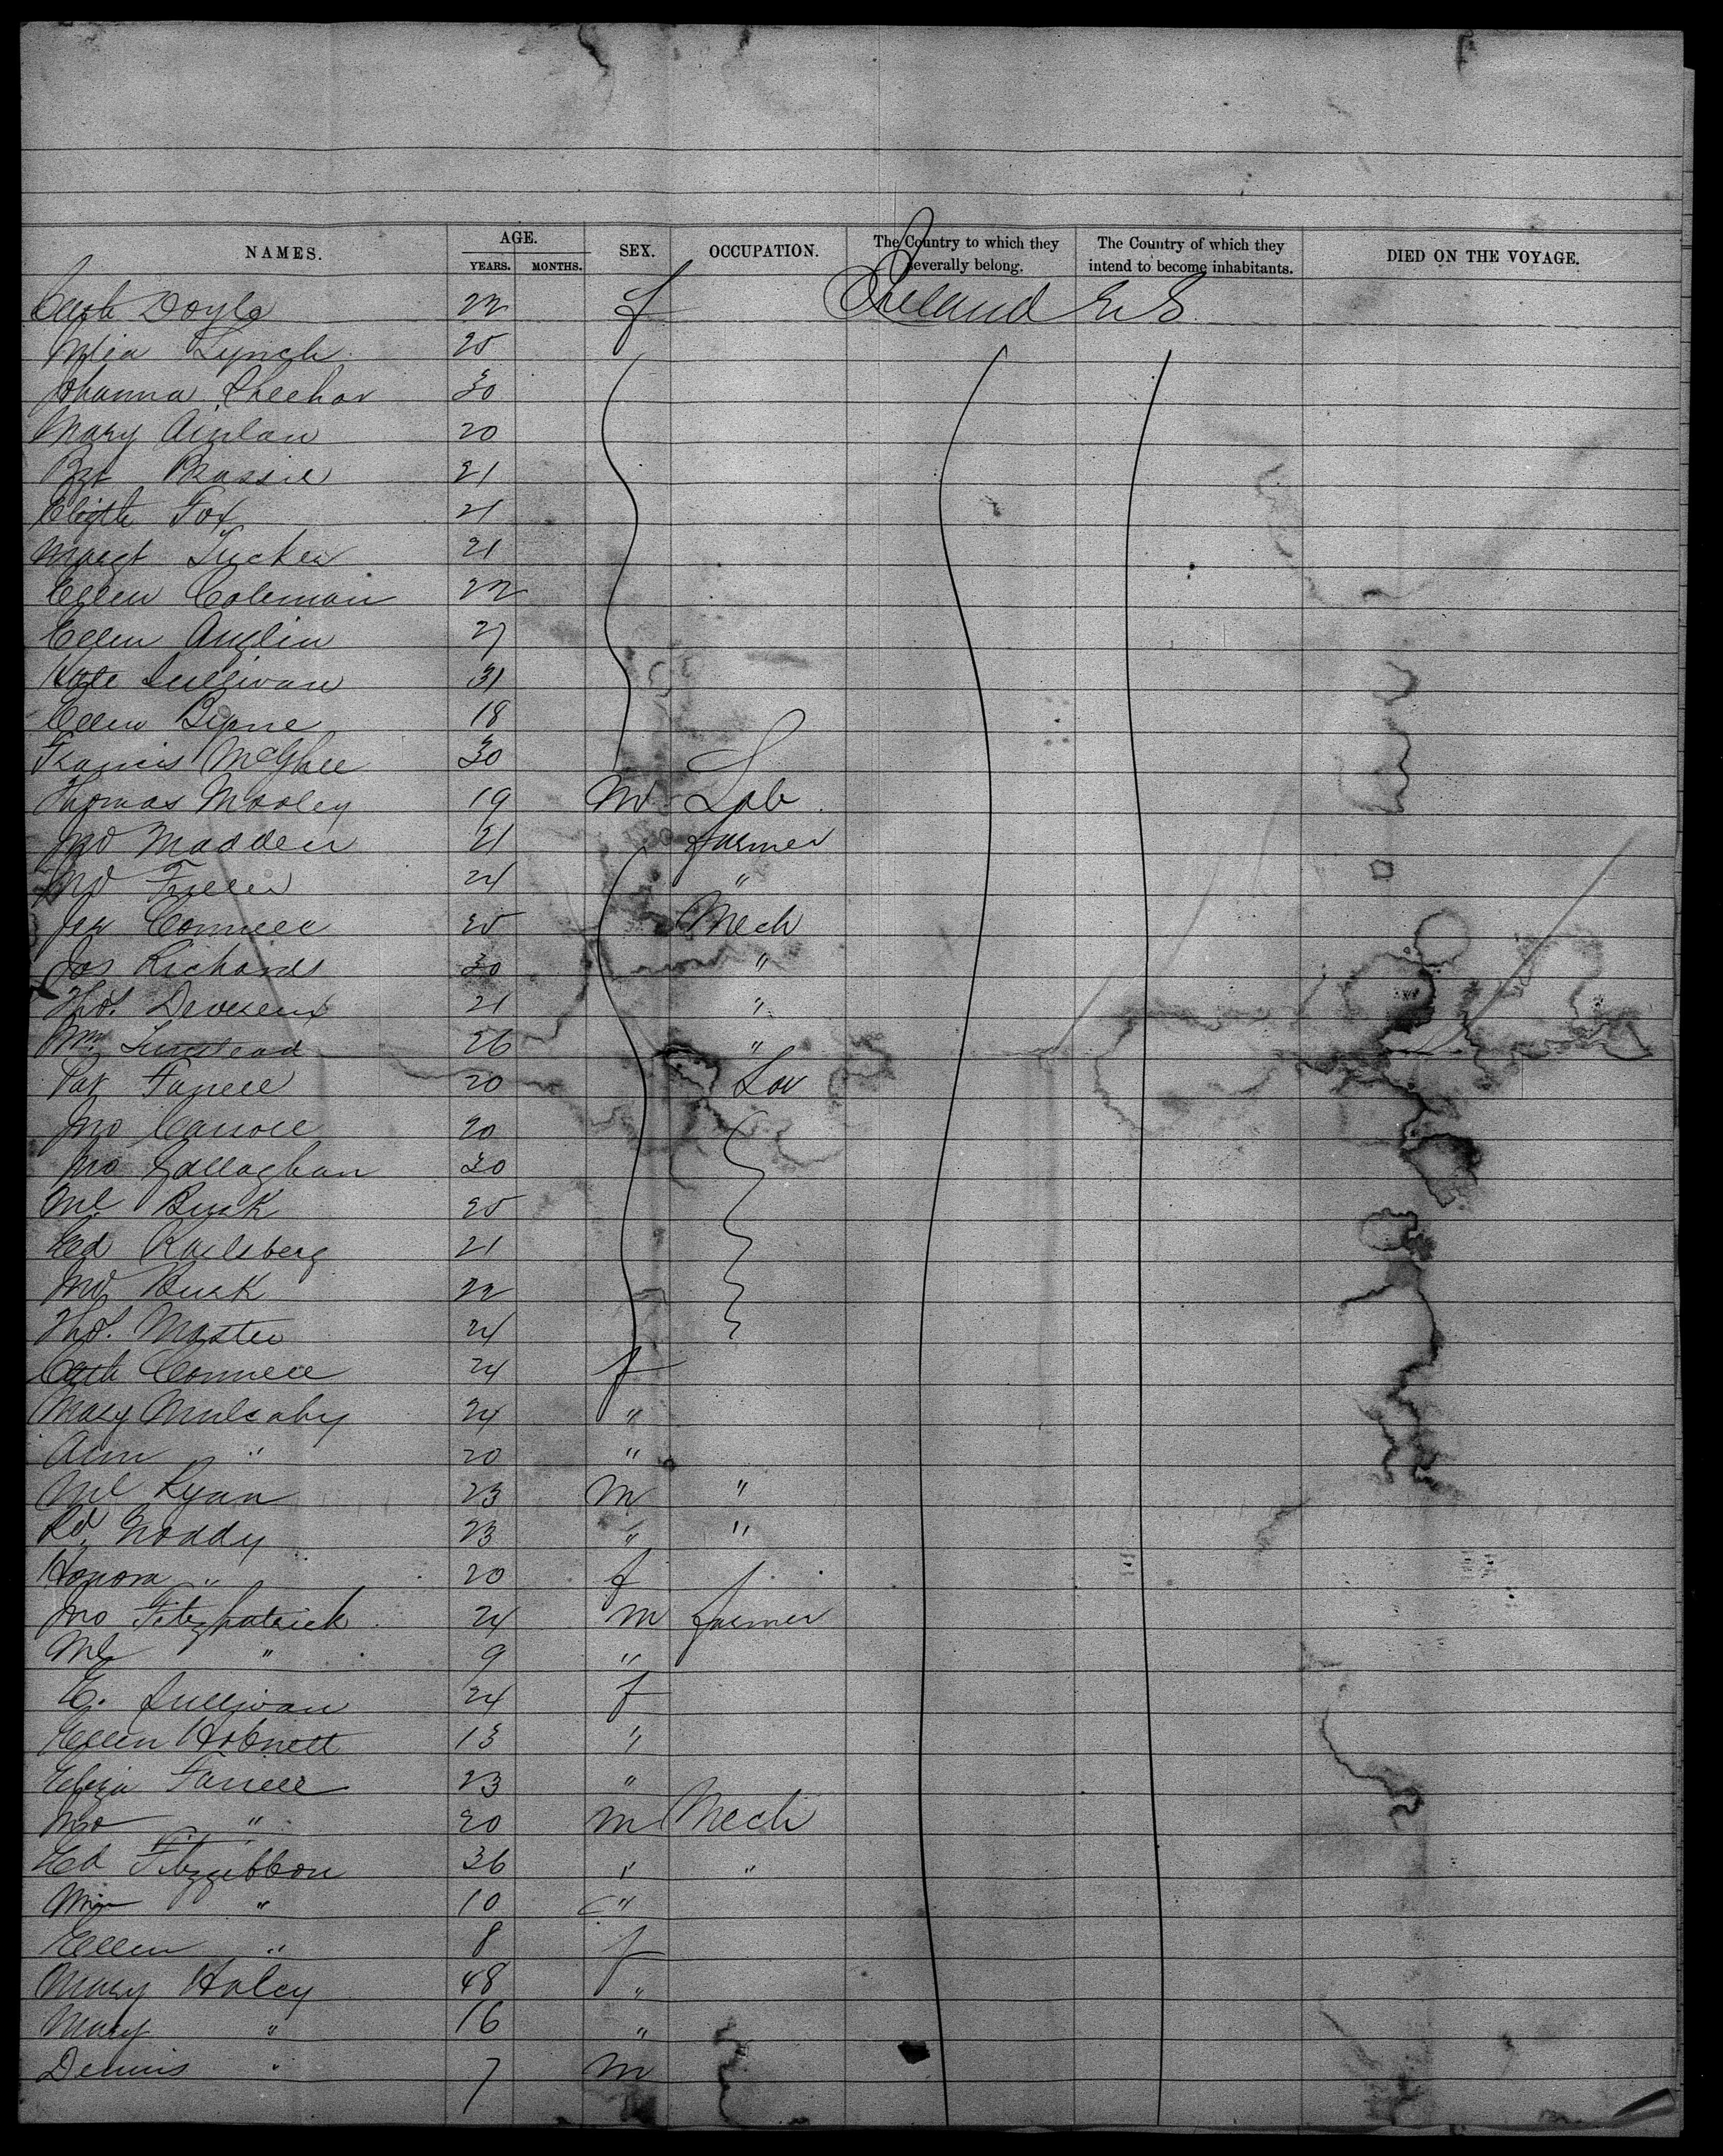 NAMES. AGE. SEX. OCCUPATION. The Country to which they severally belong. The Country of which they intend to become inhabitants. DIED ON THE VOYAGE.
YEARS. MONTHS.
Cath Doyle 22 f Ireland U S
Lynch 25
Johanna Sheehan 30
Mary 20
Bgt 21
Elizth Fox 21
Margt Tucker 21
Ellen Coleman 22
Ellen Anglin 27
Kate Sullivan 31
Ellen Byrne 18
Francis McGhee 30
Thomas Mooley 19 M Lab
Jno Madden 21 farmer
Jno 24 "
Connell 25 Mech
Jas Richards 30 "
Thos. Devereux 21 "
Wm 26 "
Pat Farrell 20 Lab
Jno Carroll 20
Jno Gallaghan 30
Ml Burk 25
Ed 21
Burk 22
Thos. Master 24
Cath Connell 24 f
Mary Mulcahy 24 "
Ann " 20 "
Ml Ryan 23 M "
Noddy 23 " "
Honora " 20 f
Jno Fitzpatrick 24 M farmer
Ml " 9 "
E. Sullivan 24 f
Ellen Hobnett 13 "
Eliza Farrell 23 "
Jno " 20 M Mech
Ed Fitzgibbon 36 " "
" 10 "
Ellen " 8 f
Mary Haley 48 "
Mary " 16 "
Dennis " 7 M